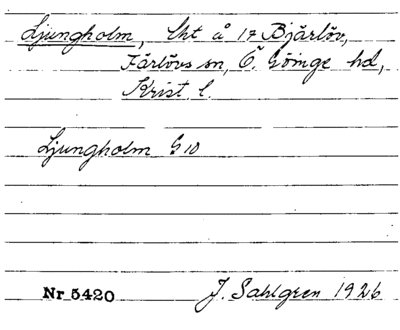 Ljungholm, lht å 17 Bjärlöv,
Färlövs sn, Ö. Göinge hd,
Krist. l.
Ljungholm G 10
Nr 5420 J. Sahlgren 1926